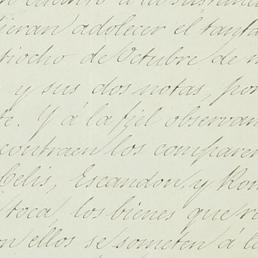 en cuanto á la sustancia
dieran adolecer el tanta
tiocho de Octubre de m
y sus dos notas, por
te. Y á la fiel observan
contraen los comparen
Celis, Escandon y Rom
toca, los bienes que re
on ellos se someten á la